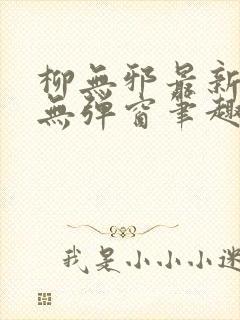 柳無邪最新
無彈窗筆趣
我是小小小迷